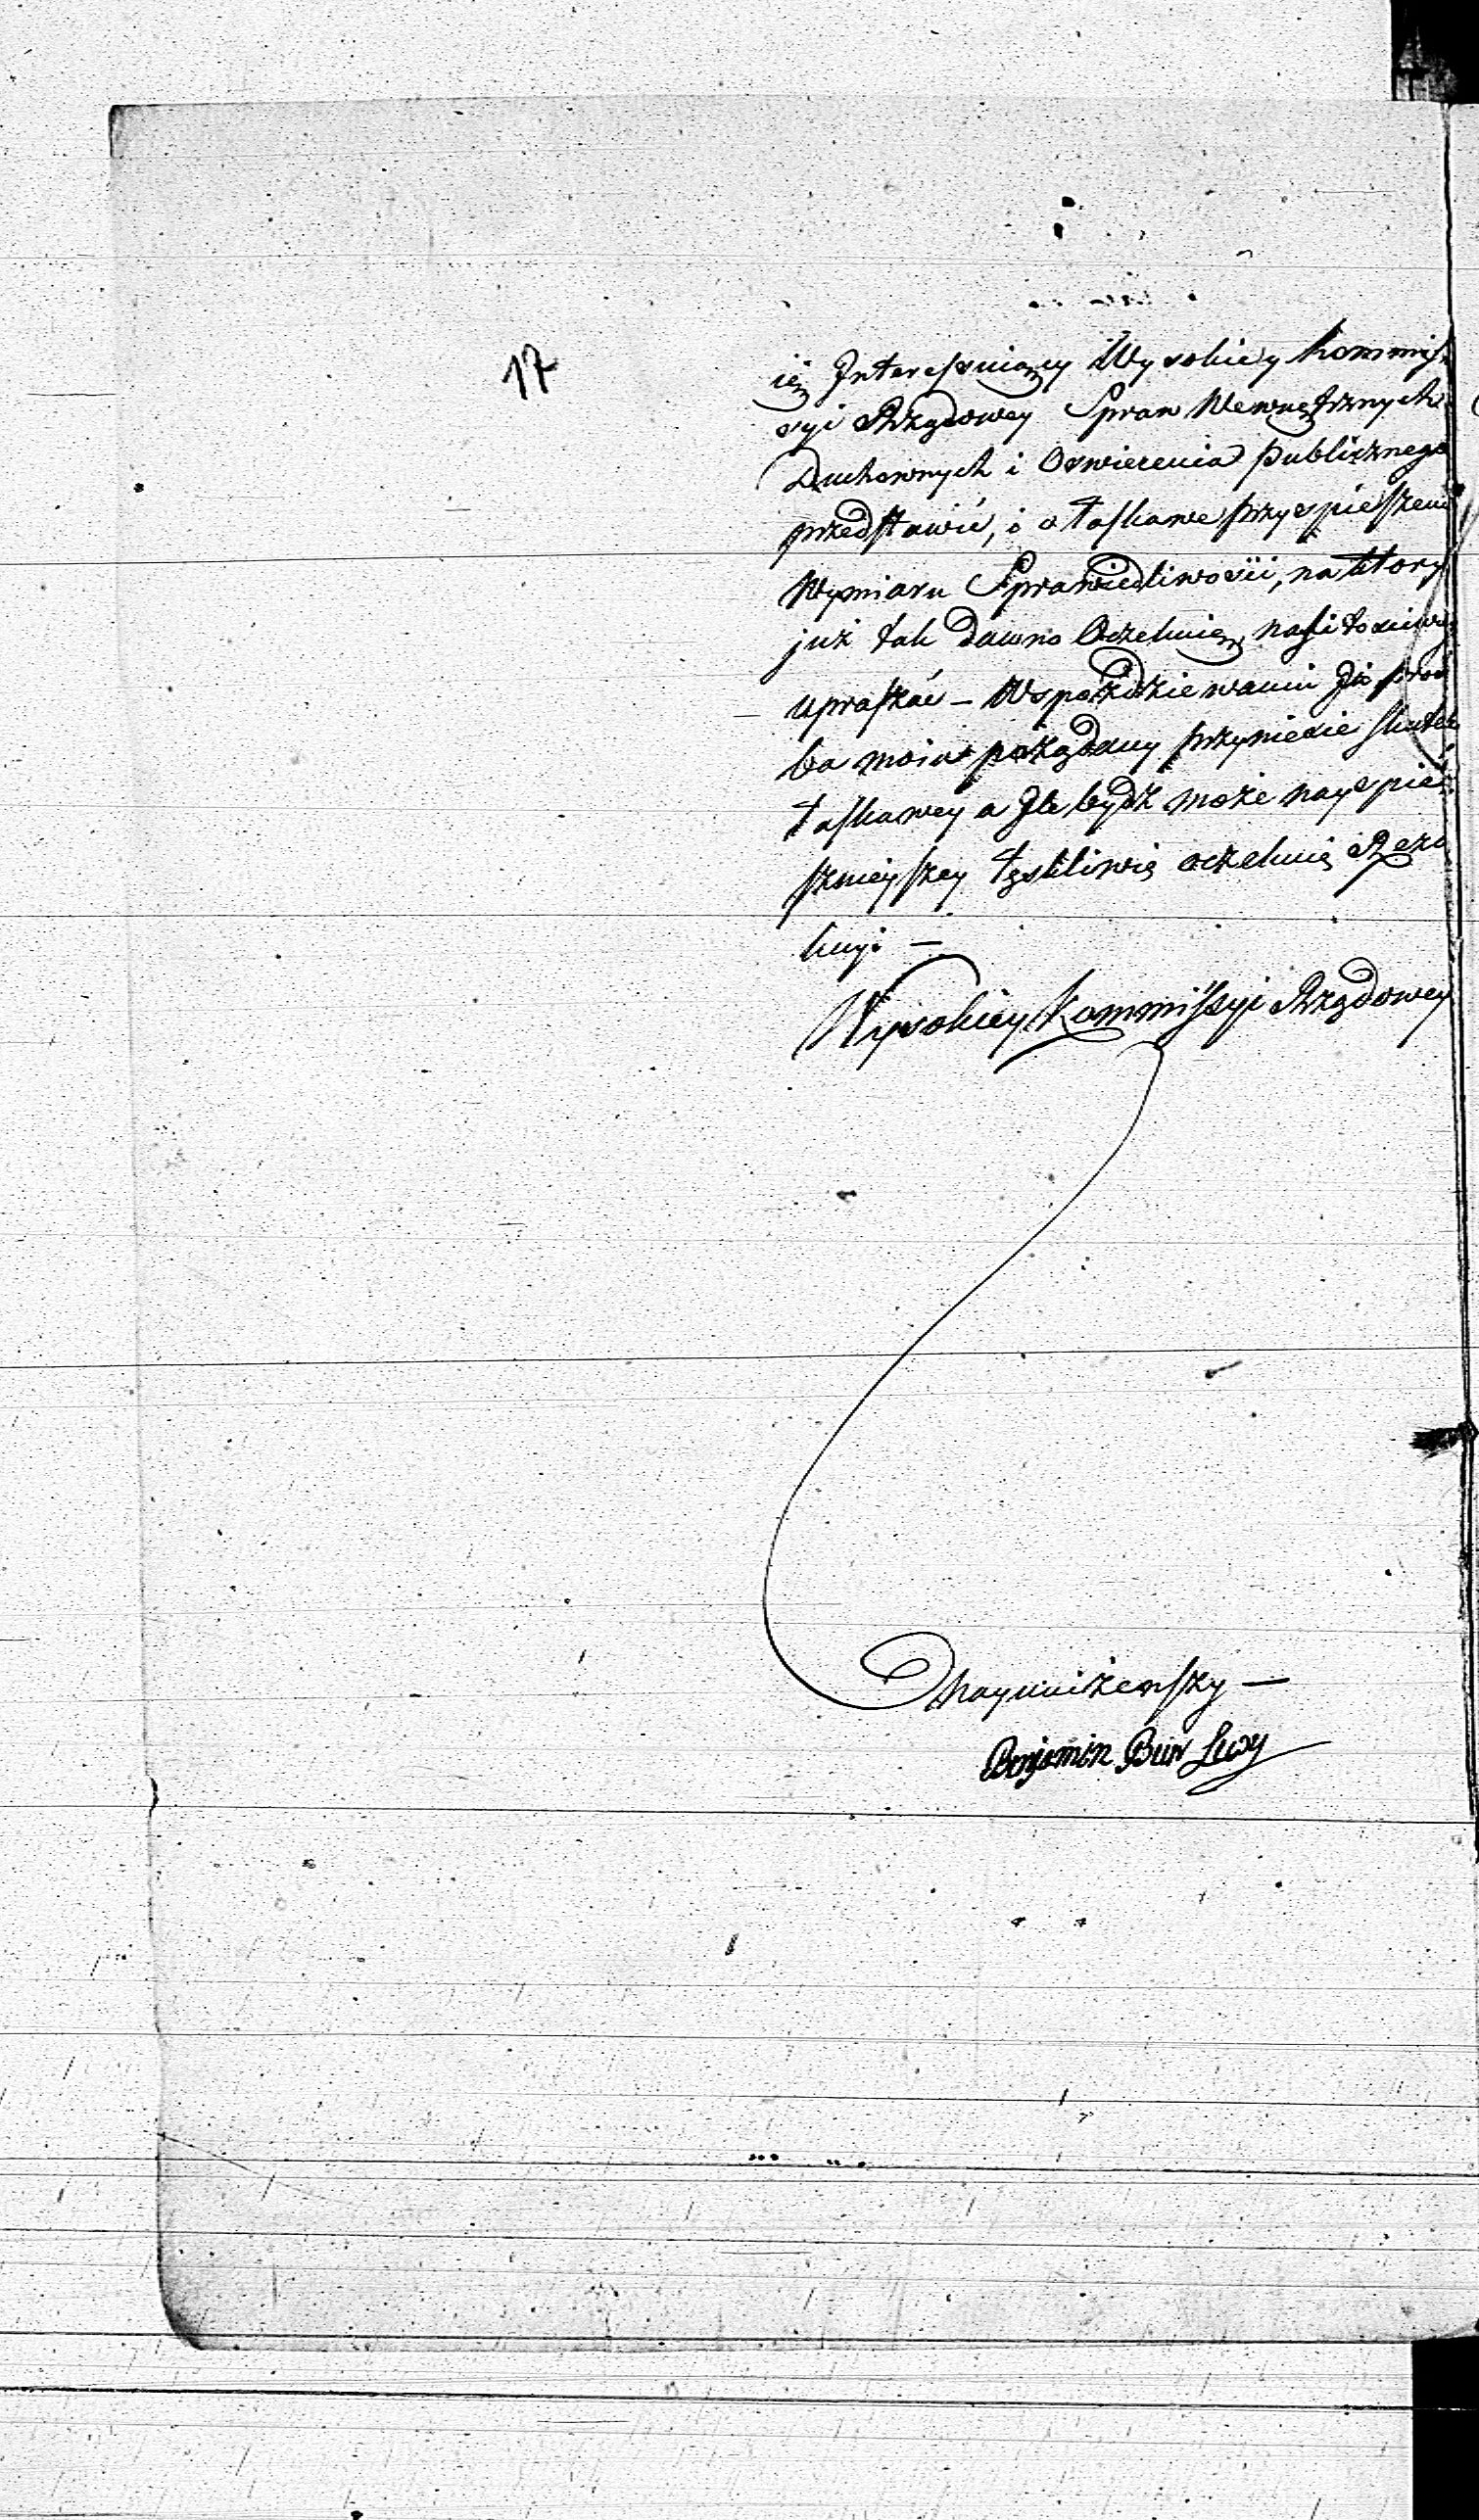 17
ię Interessuiący Wysokiey Kommis
syi Rządowey Spraw Wewnętrznych
Duchownych i Oswiecenia publicznego
przedstawić, i o łaskawe przyspieszeni
Wymiaru Sprawiedliwości, na który
już tak dawno Oczekuię, nayli tościwiey
upraszać – W spodziewaniu Iż proś
ba moia pożądany przyniesie skutek
łaskawey a Ile bydź może nayspie
sznieyszey tęskliwię oczekuię Rezo
lucyi –
Wysokiey Kommissyi Rządowey
Nayuniżenszy –
Benjamin Beer Lewy